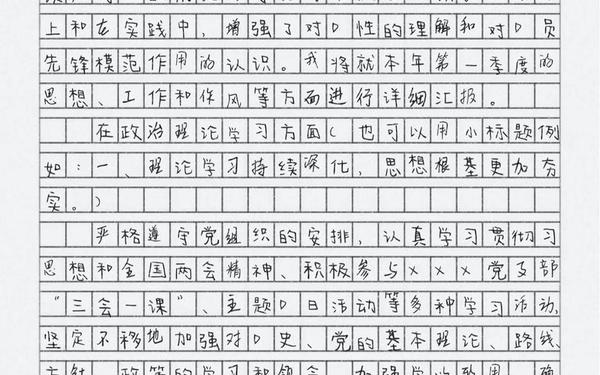 上和在实践中，增强了对D性的理解和对D员
先锋模范作用的认识。我将就本年第一季度的
思想、工作和作风等方面进行详细汇报。
在政治理论学习方面（也可以用小标题例
如：一、理论学习持续深化，思想根基更加夯
实。）
严格遵守党组织的安排，认真学习贯彻习
思想和全国两会精神、积极参与×××党支部
“三会一课”、主题D日活动等多种学习活动，
坚定不移地加强对D史、党的基本理论、路线、